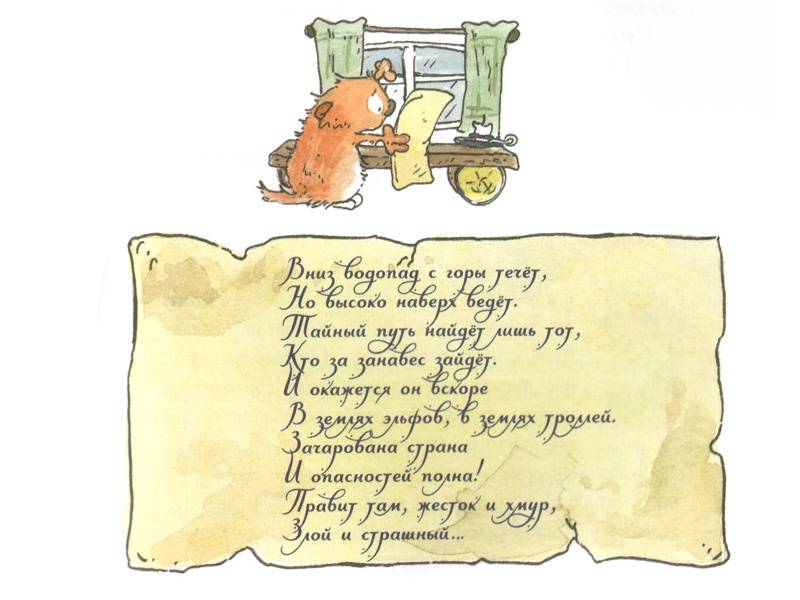 Вниз водопад с горы течёт,
Но высоко наверх ведёт.
Тайный путь найдёт лишь тот,
Кто за занавес зайдёт.
И окажется он вскоре
В землях эльфов, в землях троллей.
Зачарована страна
И опасностей полна!
Правит там, жесток и хмур,
Злой и страшный...